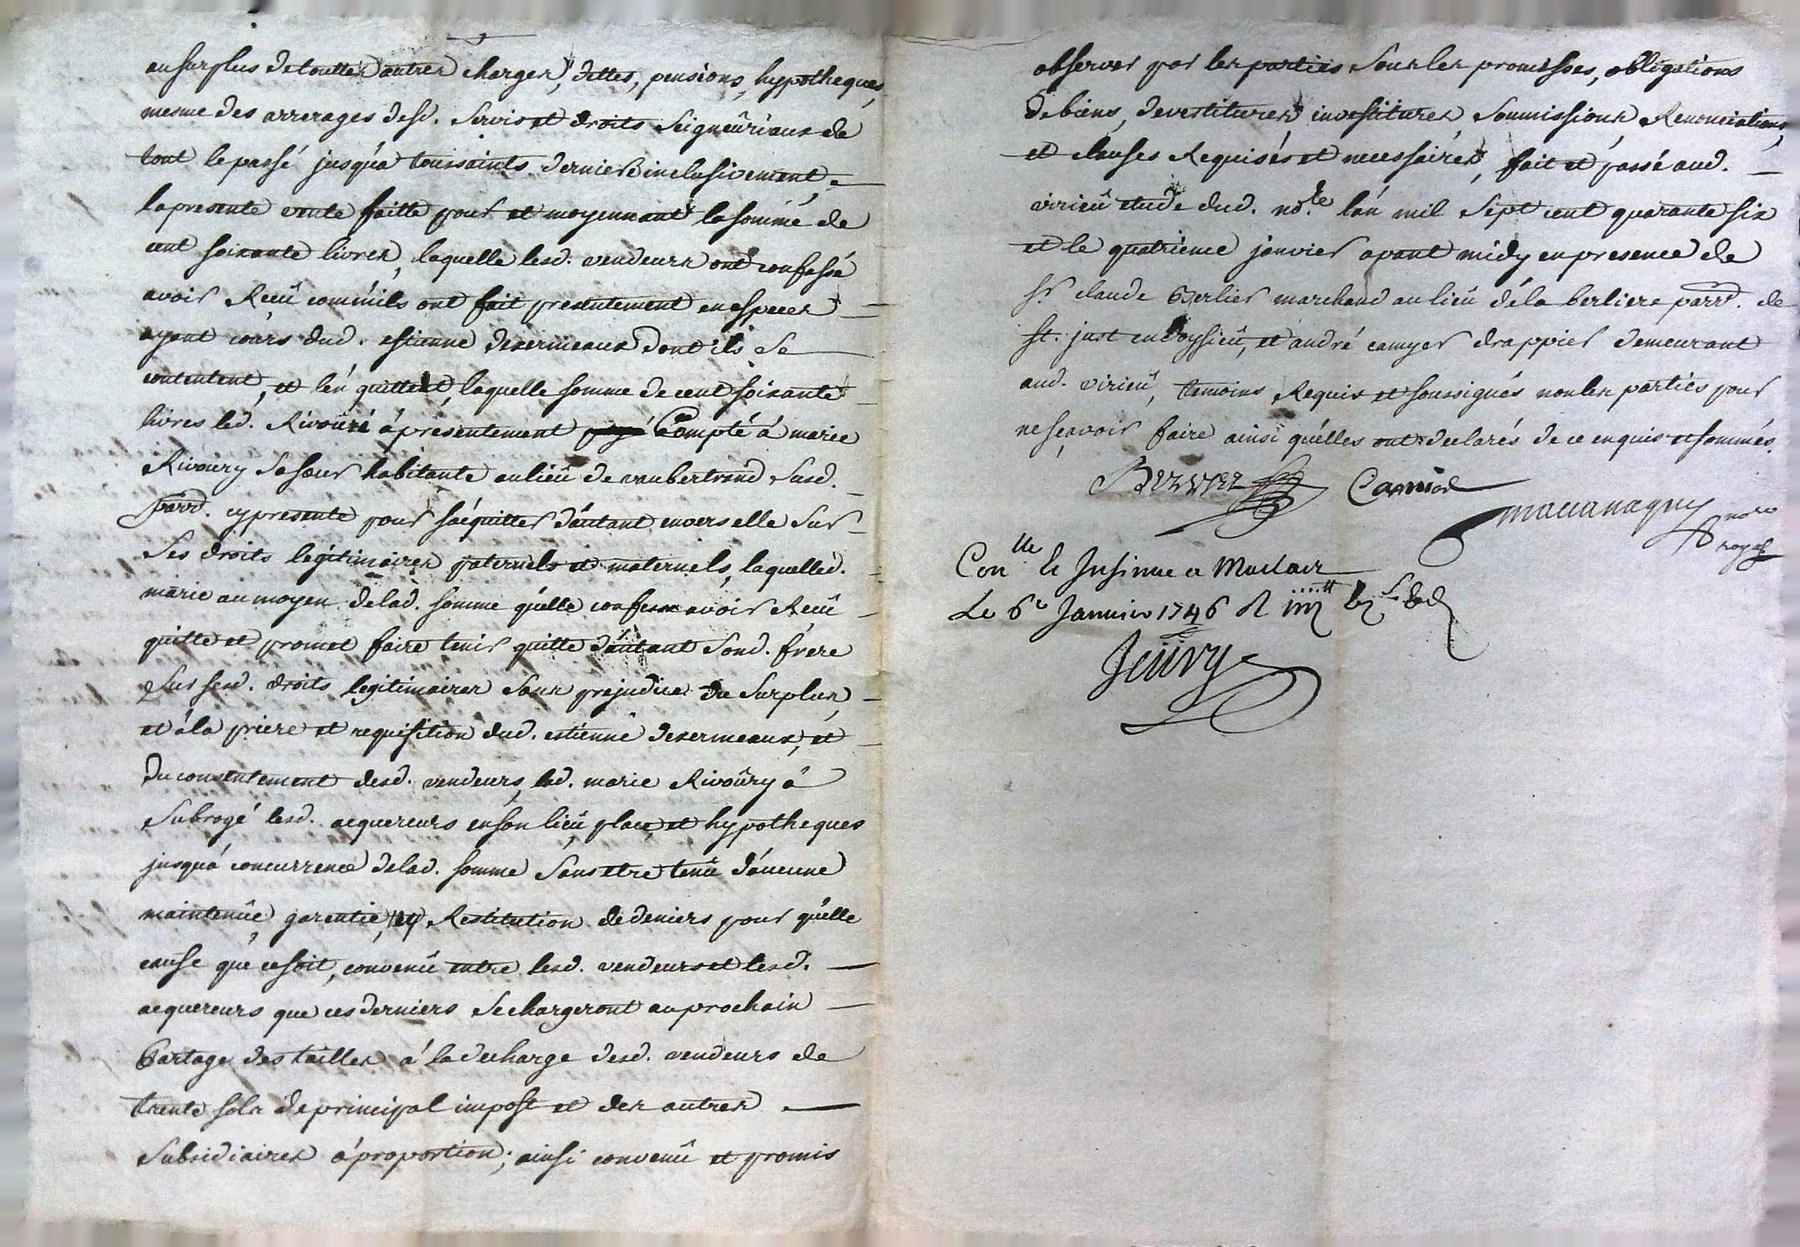 au surplus de touttes autres charges, dettes, pensions, hypotheques,
mesme des arrerages desd. servis et droits seigneuriaux de
tout le passé jusqu'a toussaints dernier inclusivement
la presente vente faitte pour et moyennant la somme de
cent soixante livres, laquelle lesd. vendeurs ont confessé
avoir Receu comm'ils ont fait presentement en especes
ayant cours dud. estienne desermeaux dont ils se
contentent, et l'en quittent, laquelle somme de cent soixante
livres led. Rivoüré á presentement payé Compté á marie
Rivoury sa sœur habitante au lieu de vaubertrand susd.
parr. cy presente pour s'acquitter d'autant envers elle sur
ses droits legitimaires paternels et maternels, laquelled.
marie au moyen delad. somme qu'elle confesse avoir Receu
quitte et promet faire tenir quitte d'autant sond. frere
sur sesd. droits legitimaires sans prejudice du surplus,
et á la priere et requisition dud. estienne desermeaux, et
du consentement desd. vendeurs, lad. marie Rivoüry á
subrogé lesd. acquereurs en son lieu, place, et hypotheques
jusqu'á concurrence delad. somme sans etre tenue d'aucune
maintenüe, garentie, ny Restitution de deniers pour qu'elle
cause que ce soit, convenü entre lesd. vendeurs et lesd.
acquereurs que ces derniers se chargeront au prochain
Partage des tailles á la decharge desd. vendeurs de
trente sols de principal impost et des autres
subsidiaires á proportion; ainsi convenü et promis
observer par les parties sous les promesses, obligations
de biens, devestitures investitures, soumissions Renonciations,
et clauses Requises et necessaires, fait et passé aud.
virieü etude dud. no.re l'an mil sept cent quarante six
et le quatrieme janvier avant midy en presence de
sr claude Berlier marchand au lieu de la berliere parr. de
st. just en doysieü, et andré camyer drappier demeurant
aud. virieü, temoins Requis et soussignés non les parties pour
ne sçavoir faire ainsi qu'elles ont declarés de ce enquis et sommés.
Camier
no.re
royal
Con.lle et Insinué a Maclair
Le 6e Janvier 1746 R
Jeüvry